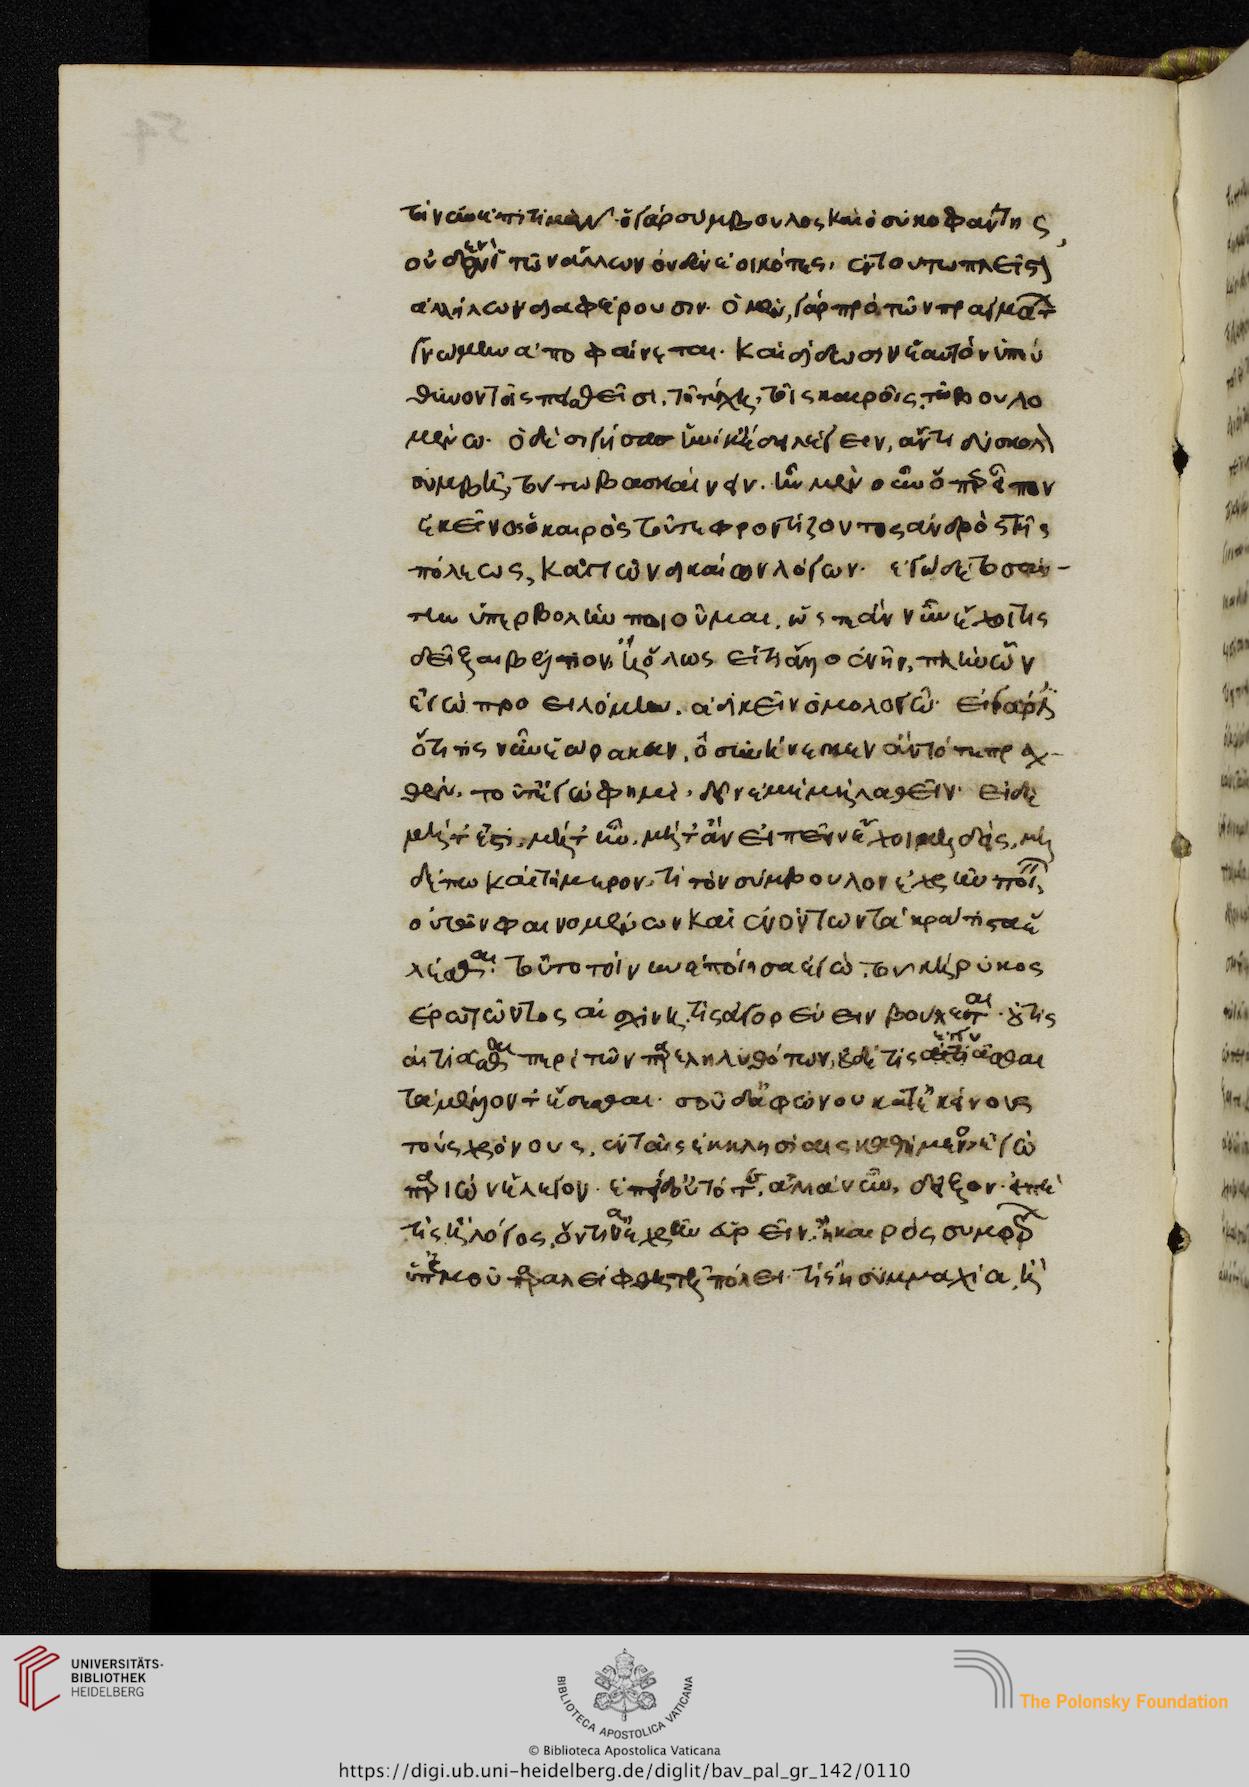 τάναντία ἐπιτιμῶν· ὁ γὰρ σύμβουλος καὶ ὁ συκοφάντης,
οὐδενὶ τῶν ἄλλων οὐδὲν ἐοικότες, ἐν τούτῳ πλεῖστον
ἀλλήλων διαφέρουσιν. ὁ μέν, γὰρ πρὸ τῶν πραγμάτων
γνώμην ἀποφαίνεται. καὶ δίδωσιν ἑαυτὸν ὑπεύ
θυνον τοῖς πεισθεῖσι, τῇ τύχῃ, τοῖς καιροῖς, τῷ βουλο
μένῳ. ὁ δὲ σιγήσας ἡνίκ' ἔδει λέγειν, ἄν τι δύσκολον
συμβῇ, τοῦτο βασκαίνει. ἦν μὲν οὖν ὅπερ εἶπον
ἐκεῖνος ὁ καιρὸς τοῦ γε φροντίζοντος ἀνδρὸς τῆς
πόλεως, καὶ τῶν δικαίων λόγων. ἐγὼ δὲ τοσαύ-
την ὑπερβολὴν ποιοῦμαι, ὥστε ἂν νῦν ἔχῃ τις
δεῖξαι βέλτιον, ἢ ὅλως εἴ τι ἄλλο ἐνῆν, πλὴν ὧν
ἐγὼ προειλόμην, ἀδικεῖν ὁμολογῶ. εἰ γὰρ ἔσθ'
ὅτι τις νῦν ἑώρακεν, ὃ συνήνεγκεν ἂν τότε πραχ-
θέν, τοῦτ' ἐγώ φημι δεῖν ἐμὲ μὴ λαθεῖν. εἰ δὲ
μήτ' ἔστι, μήτ' ἦν, μήτ' ἂν εἰπεῖν ἔχοι μηδείς, μη
δέπω καὶ τήμερον, τί τὸν σύμβουλον ἐχρῆν ποιεῖν,
οὐ τῶν φαινομένων καὶ ἐνόντων τὰ κράτιστα ἑ
λέσθαι. τοῦτο τοίνυν ἐποίησα ἐγώ, τοῦ κήρυκος
ἐρωτῶντος αἰσχίνη, τίς ἀγορεύειν βούλεται. οὐ τίς
αἰτιᾶσθαι περὶ τῶν παρεληλυθότων, οὐδὲ τίς ἐγγυᾶσθαι
τὰ μέλλοντ' ἔσεσθαι. σοῦ δ' ἀφώνου κατ' ἐκείνους
τοὺς χρόνους, ἐν ταῖς ἐκκλησίαις καθημένου ἐγὼ
παριὼν ἔλεγον. ἐπειδὴ δ' οὐ τότε, ἀλλὰ νῦν, δεῖξον. εἰπὲ
τίς ἢ λόγος, ὅντιν' ἐχρῆν εὑρεῖν, ἢ καιρὸς συμφέρων
ὑπ' ἐμοῦ παρελείφθη τῇ πόλει. τίς ἡ συμμαχία, ἢ
UNIVERSITÄTS-
BIBLIOTHEK
HEIDELBERG
BIBLIOTECA APOSTOLICA VATICANA
The Polonsky Foundation
© Biblioteca Apostolica Vaticana
https://digi.ub.uni-heidelberg.de/diglit/bav_pal_gr_142/0110